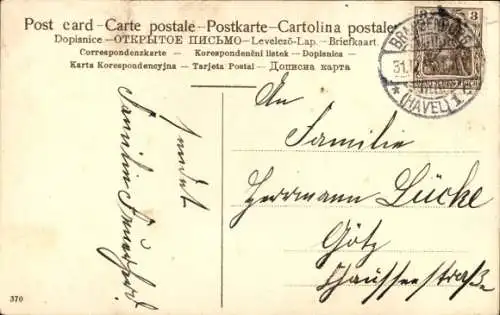 Post card - Carte postale - Postkarte - Cartolina postale
Dopisnice - ОТКРЫТОЕ ПИСЬМО - Levelező-Lap. - Briefkaart.
Correspondenzkarte - Korespondenční lístek - Dopisnica -
Karta Korespondencyjna - Tarjeta Postal - Дописна карта
3 3
BRANDENBURG
31.
*(HAVEL) 1
An
Familie
Herrmann Lücke
Götz
Chausseestraße
sendet
Familie
370